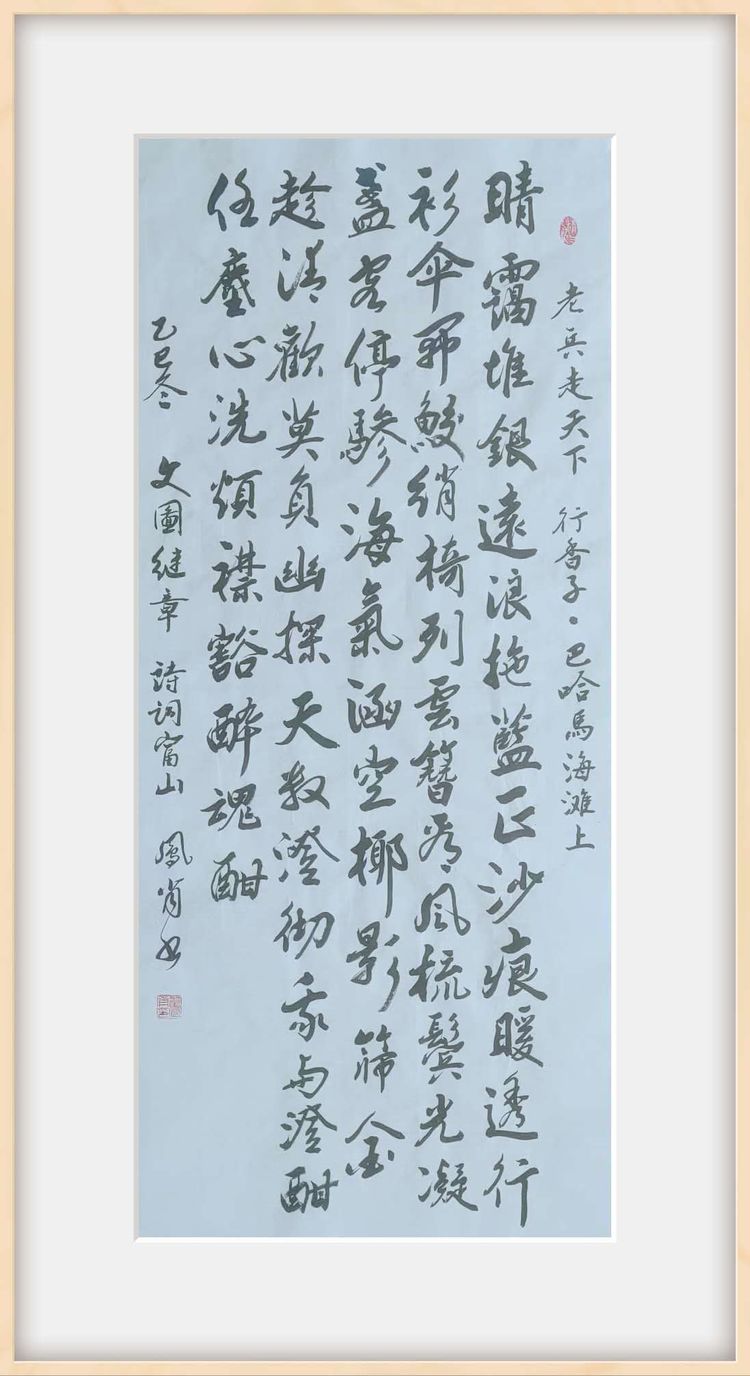 老兵走天下 行香子·巴哈馬海滩上
晴靄堆銀遠浪拖藍正沙痕暖透行
衫傘開鮫綃椅列雲簪看風梳鬢光凝
盞客停驂海氣涵空椰影篩金
趁清歡莫負幽探天教澄彻我与澄酣
任塵心洗煩襟豁醉魂酣
乙巳冬 文圖继章 詩词富山 鳳肖书